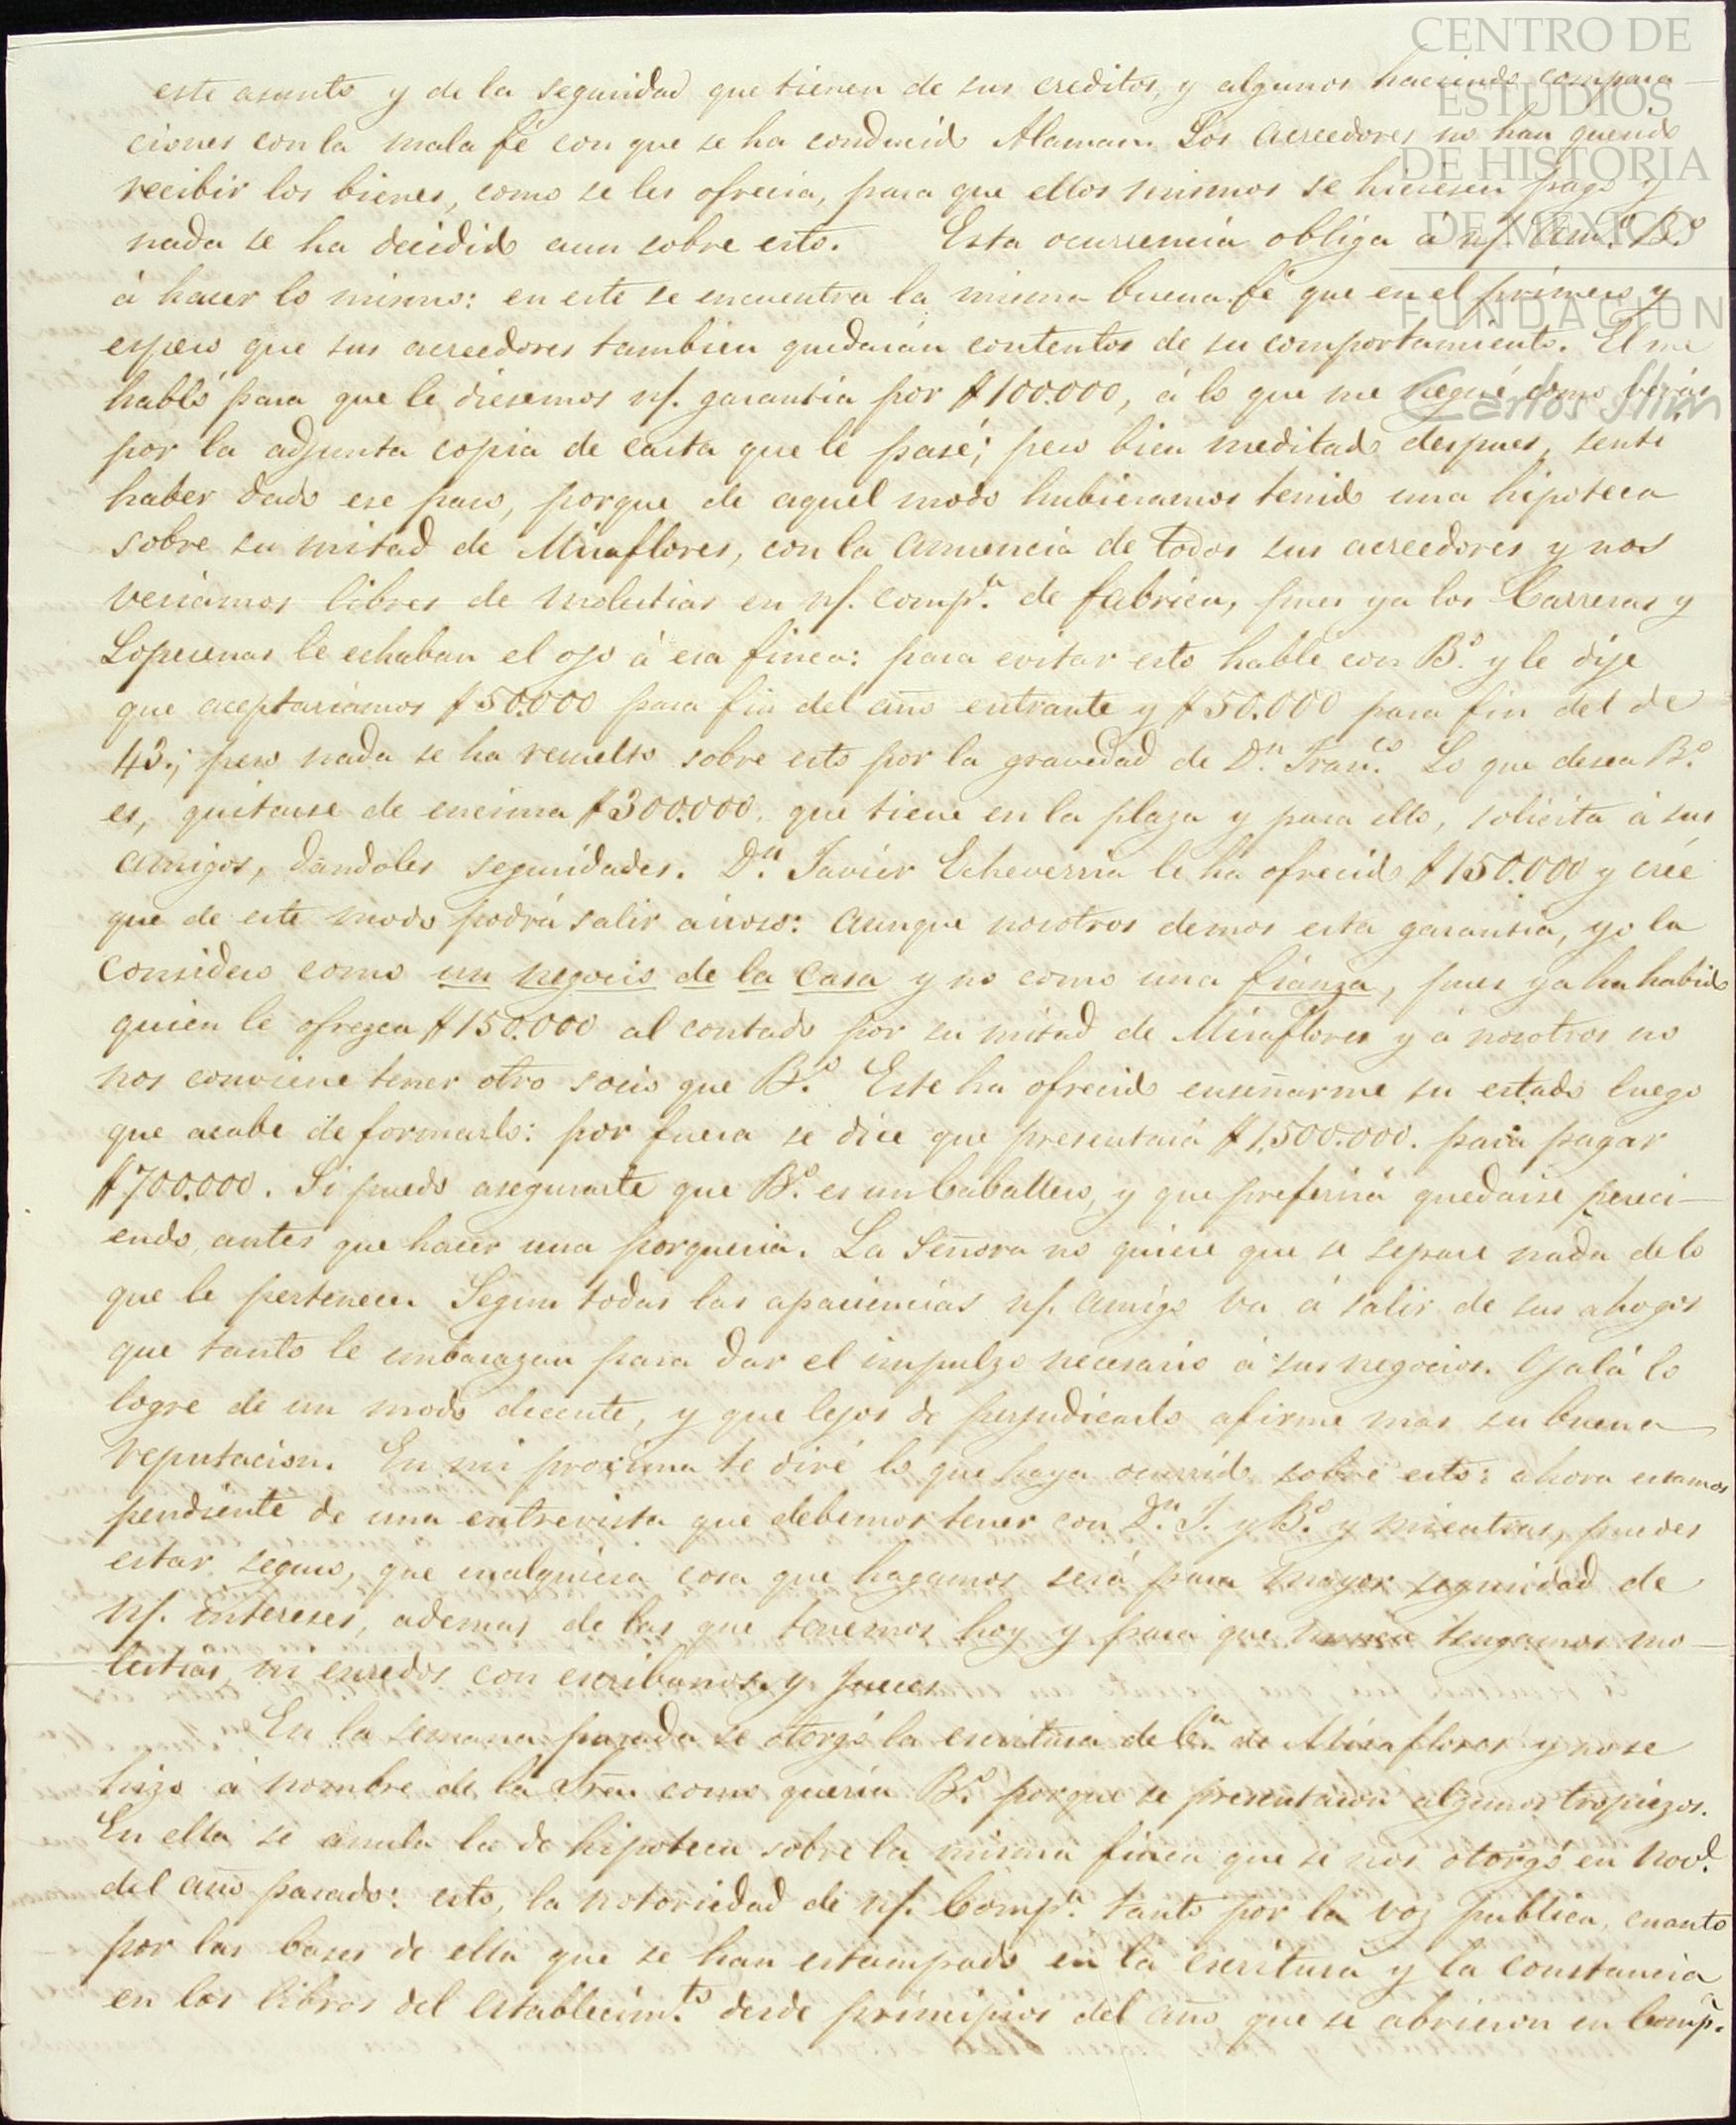 CENTRO DE
ESTUDIOS
DE HISTORIA
DE MEXICO
FUNDACION
Carlos Slim
este asunto y de la seguridad que tienen de sus creditos, y algunos haciendo compara-
ciones con la mala fé con que se ha conducido Alaman. Los acreedores no han querido
recibir los bienes, como se les ofrecia, para que ellos mismos se hiciesen pago y
nada se ha decidido aun sobre esto. Esta ocurrencia obliga á nṝ. Am.º B.º
á hacer lo mismo: en este se encuentra la misma buena fé que en el primero y
espero que sus acreedores tambien quedarán contentos de su comportamiento. El me
habló para que le diesemos nṝ. garantia por $100.000, á lo que me negué como verás
por la adjunta copia de carta que le pasé; pero bien meditado despues, senti
haber dado ese paso, porque de aquel modo hubieramos tenido una hipoteca
sobre su mitad de Miraflores, con la anuencia de todos sus acreedores y nos
veriamos libres de molestias en nṝ. comp.ª de fabrica, pues ya los Carreras y
Loperenas le echaban el ojo á esa finca: para evitar esto hablé con B.º y le dije
que aceptariamos $50.000 para fin del año entrante y $50.000 para fin del de
43.; pero nada se ha resuelto sobre esto por la gravedad de D.n Fran.co Lo que desea B.º
es, quitarse de encima $300.000. que tiene en la plaza y para ello, solicita á sus
amigos, dandoles seguridades. D.n Javier Echeverria le ha ofrecido $150.000 y crée
que de este modo podrá salir áiroso: aunque nosotros demos esta garantia, yo la
considero como un negocio de la casa y no como una fianza, pues ya ha habido
quien le ofrezca $150.000 al contado por su mitad de Miraflores y á nosotros no
nos conviene tener otro socio que B.º Este ha ofrecido enseñarme su estado luego
que acabe de formarlo: por fuera se dice que presentará $1.500.000. para pagar
$700.000. Si puedo asegurarte que B.º es un Caballero, y que preferirá quedarse pereci-
endo, antes que hacer una porqueria. La Señora no quiere que se separe nada de lo
que le pertenece. Segun todas las apariencias nṝ. amigo va á salir de sus ahogos
que tanto le embarazan para dar el impulzo necesario á sus negocios. Ojalá lo
logre de un modo decente, y que lejos de perjudicarlo afirme mas su buena
reputacion. En mi proxima te diré lo que haya ocurrido sobre esto: ahora estamos
pendiente de una entrevista que debemos tener con D.n J. y B.º y mientras, puedes
estar seguro, que cualquiera cosa que hagamos será para mayor seguridad de
nṝ. intereses, ademas de las que tenemos hoy y para que nunca tengamos mo-
lestias, ni enredos con escribanos y Jueces
En la semana pasada se otorgó la escritura de C.ª de Miraflores y no se
hizo á nombre de la Sra. como queria B.º porque se presentaron algunos tropiezos.
En ella se anula la de hipoteca sobre la misma finca que se nos otorgó en Nov.e
del año pasado: esto, la notoriedad de nṝ. Comp.ª tanto por la voz publica, cuanto
por las bases de ella que se han estampado en la escritura y la constancia
en los libros del establecim.to desde principios del año que se abrieron en Comp.ª